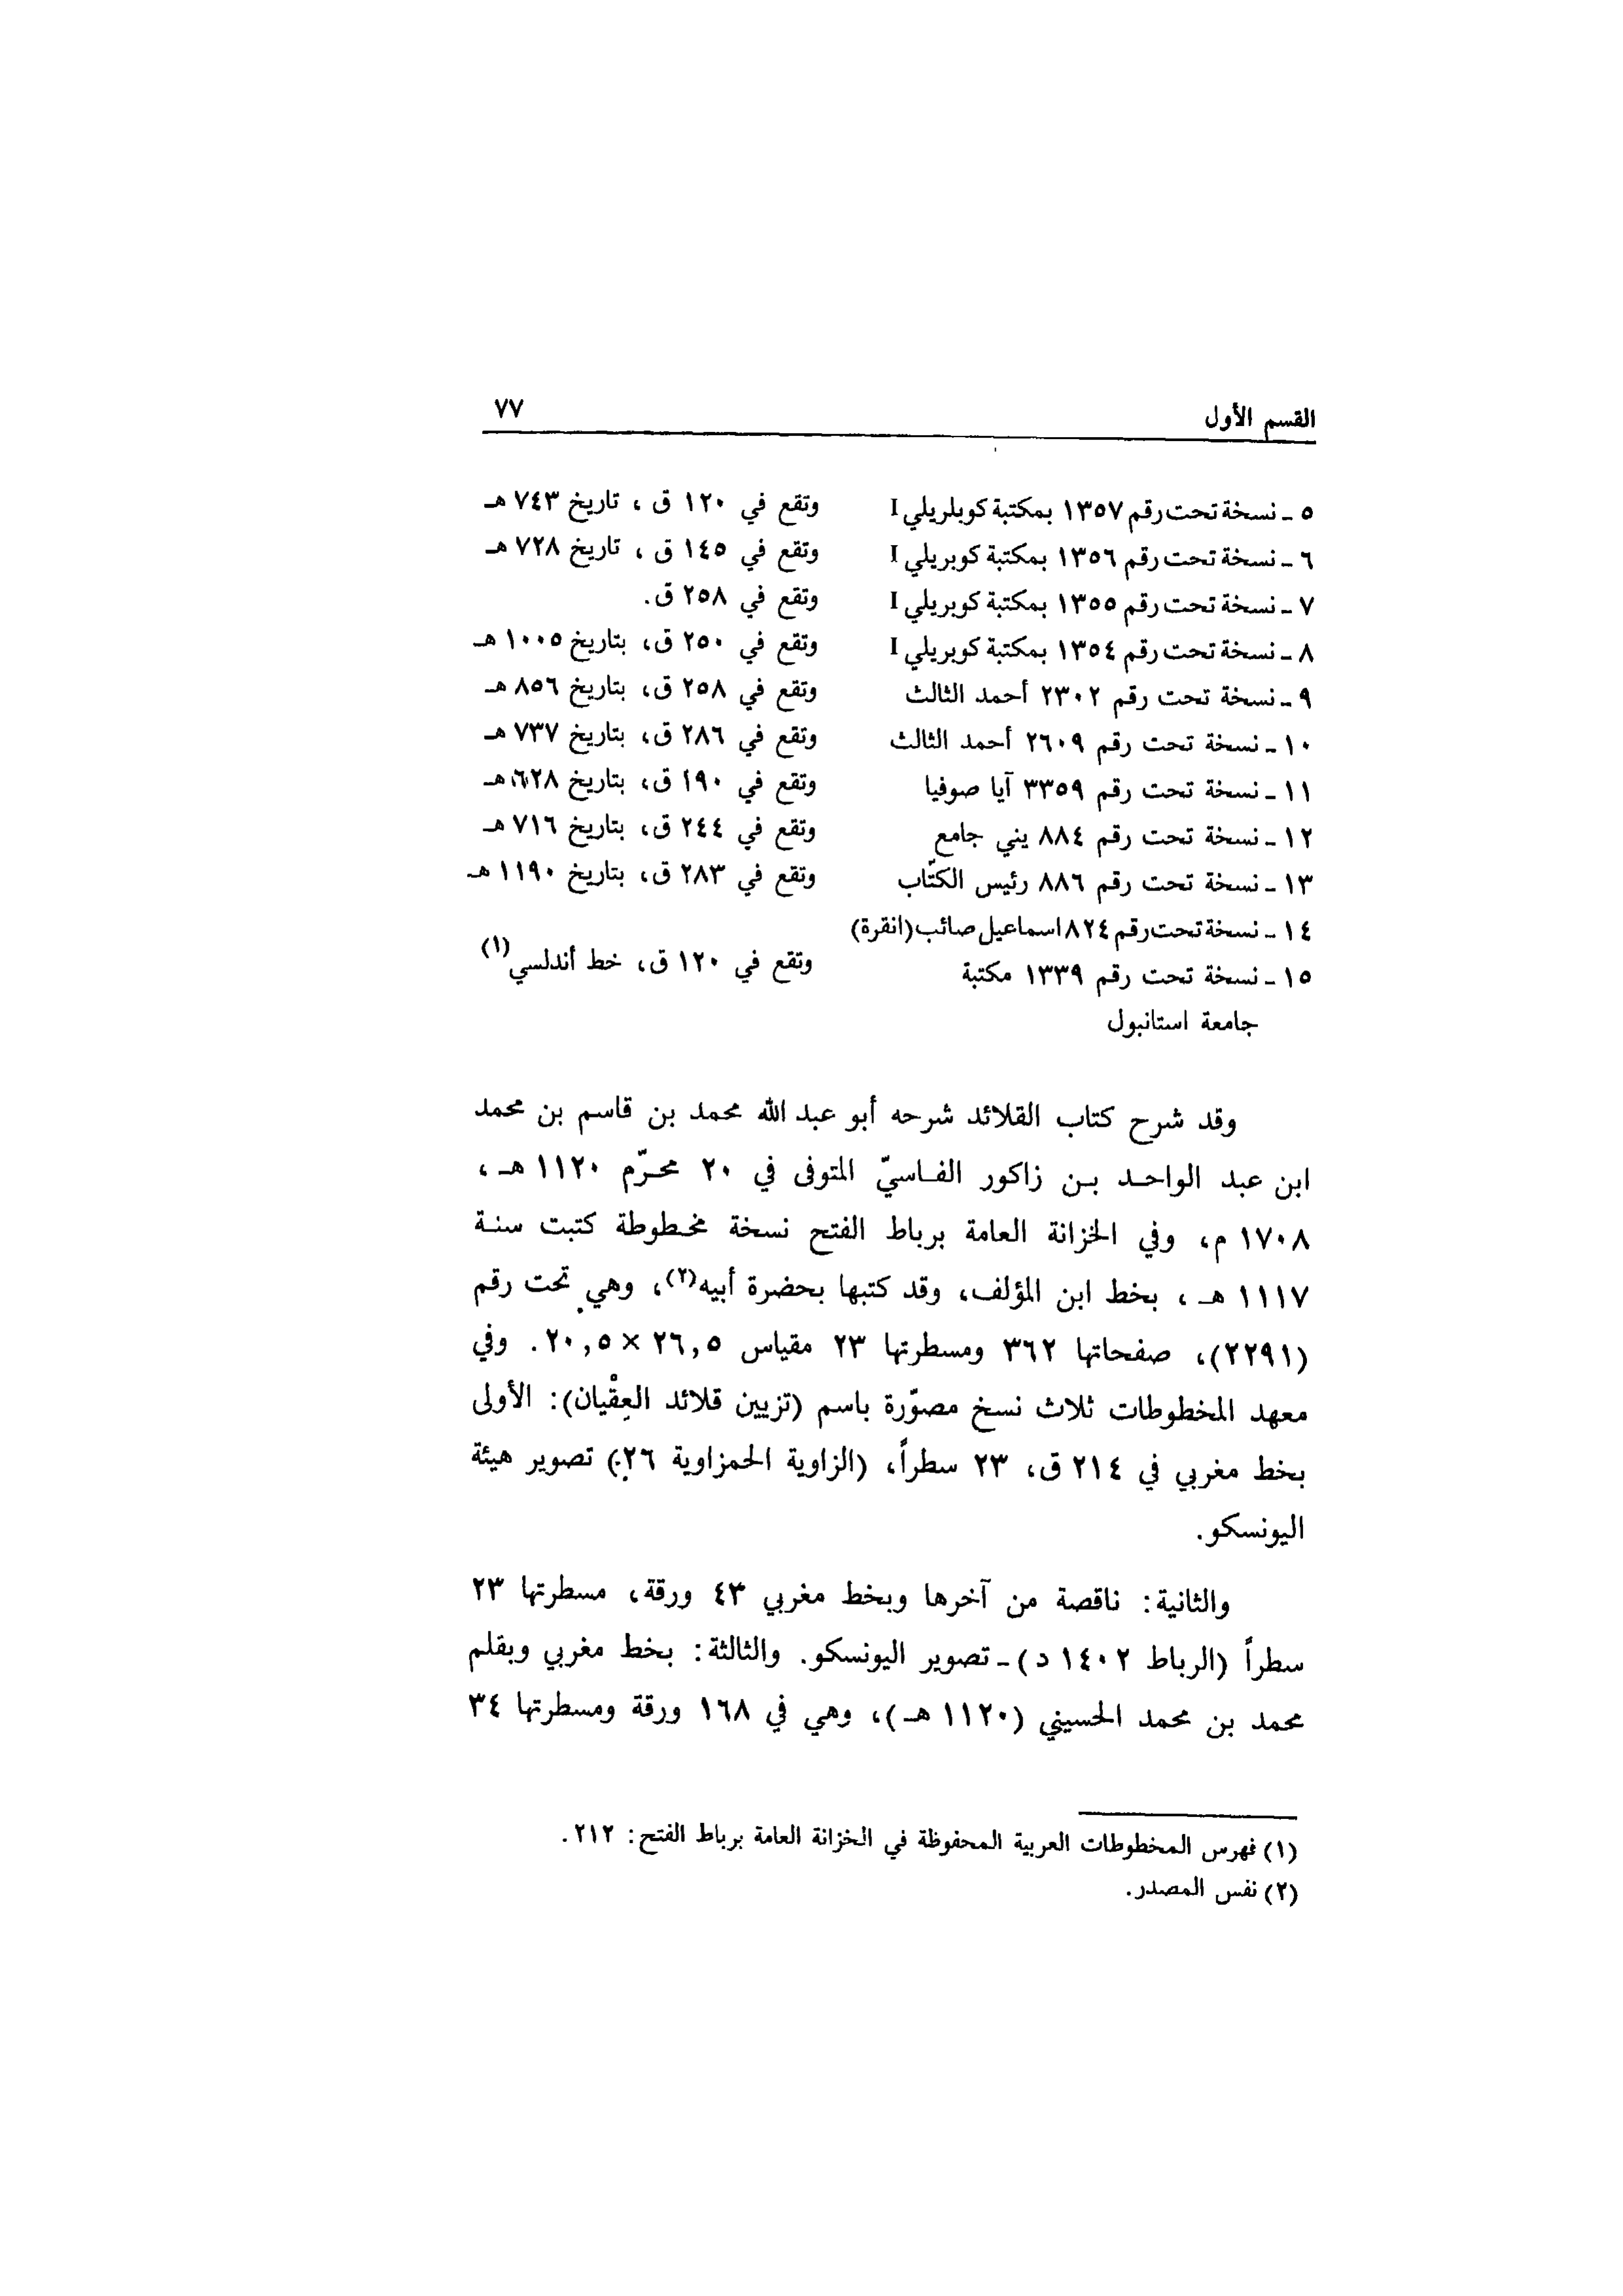 القسم الأول ٧٧
٥ ـ نسخة تحت رقم ١٣٥٧ بمكتبة كوبلريلي I وتقع في ١٢٠ ق ، تاريخ ٧٤٣ هـ
٦ ـ نسخة تحت رقم ١٣٥٦ بمكتبة كوبريلي I وتقع في ١٤٥ ق ، تاريخ ٧٢٨ هـ
٧ ـ نسخة تحت رقم ١٣٥٥ بمكتبة كوبريلي I وتقع في ٢٥٨ ق.
٨ ـ نسخة تحت رقم ١٣٥٤ بمكتبة كوبريلي I وتقع في ٢٥٠ ق، بتاريخ ١٠٠٥ هـ
٩ ـ نسخة تحت رقم ٢٣٠٢ أحمد الثالث وتقع في ٢٥٨ ق، بتاريخ ٨٥٦ هـ
١٠ ـ نسخة تحت رقم ٢٦٠٩ أحمد الثالث وتقع في ٢٨٦ ق، بتاريخ ٧٣٧ هـ
١١ ـ نسخة تحت رقم ٣٣٥٩ آيا صوفيا وتقع في ١٩٠ ق، بتاريخ ٦٢٨ هـ
١٢ ـ نسخة تحت رقم ٨٨٤ يني جامع وتقع في ٢٤٤ ق، بتاريخ ٧١٦ هـ
١٣ ـ نسخة تحت رقم ٨٨٦ رئيس الكتّاب وتقع في ٢٨٣ ق، بتاريخ ١١٩٠ هـ
١٤ ـ نسخة تحت رقم ٨٢٤ اسماعيل صائب (انقرة)
١٥ ـ نسخة تحت رقم ١٣٣٩ مكتبة وتقع في ١٢٠ ق، خط أندلسي(١)
جامعة استانبول
وقد شرح كتاب القلائد شرحه أبو عبد الله محمد بن قاسم بن محمد
ابن عبد الواحد بن زاكور الفاسيّ المتوفى في ٢٠ محرّم ١١٢٠ هـ ،
١٧٠٨ م، وفي الخزانة العامة برباط الفتح نسخة مخطوطة كتبت سنة
١١١٧ هـ ، بخط ابن المؤلف، وقد كتبها بحضرة أبيه(٢)، وهي تحت رقم
(٢٢٩١)، صفحاتها ٣٦٢ ومسطرتها ٢٣ مقياس ٢٦,٥ × ٢٠,٥. وفي
معهد المخطوطات ثلاث نسخ مصوّرة باسم (تزيين قلائد العِقْيان): الأولى
بخط مغربي في ٢١٤ ق، ٢٣ سطراً، (الزاوية الحمزاوية ٢٦) تصوير هيئة
اليونسكو.
والثانية: ناقصة من آخرها وبخط مغربي ٤٣ ورقة، مسطرتها ٢٣
سطراً (الرباط ١٤٠٢ د) ـ تصوير اليونسكو. والثالثة: بخط مغربي وبقلم
محمد بن محمد الحسيني (١١٢٠ هـ)، وهي في ١٦٨ ورقة ومسطرتها ٣٤
(١) فهرس المخطوطات العربية المحفوظة في الخزانة العامة برباط الفتح: ٢١٢.
(٢) نفس المصدر.